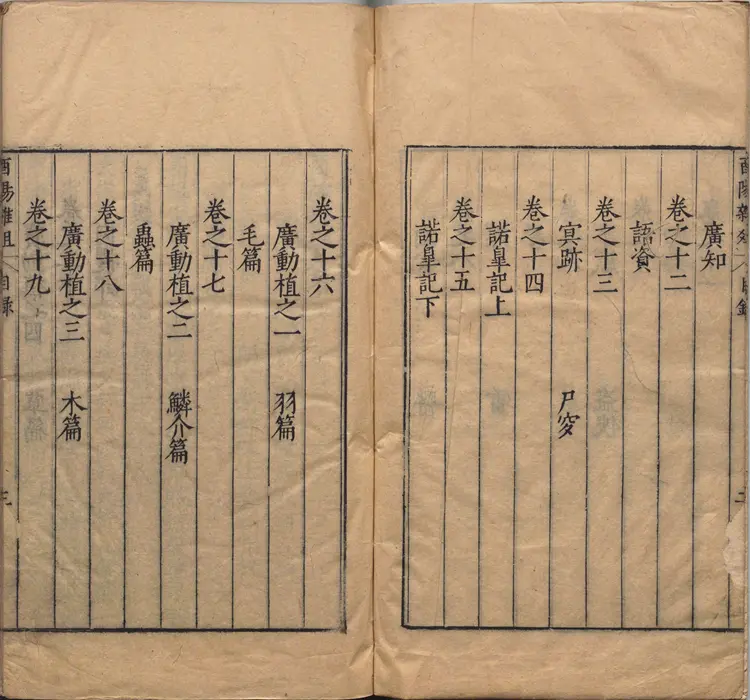 酉陽雜俎 目錄
廣知
卷之十二
語資
卷之十三
冥跡 尸穸
卷之十四
諾皐記上
卷之十五
諾皐記下
卷之十六
廣動植之一 羽篇
毛篇
卷之十七
廣動植之二 鱗介篇
蟲篇
卷之十八
廣動植之三 木篇
卷之十九
酉陽雜俎 目錄 三